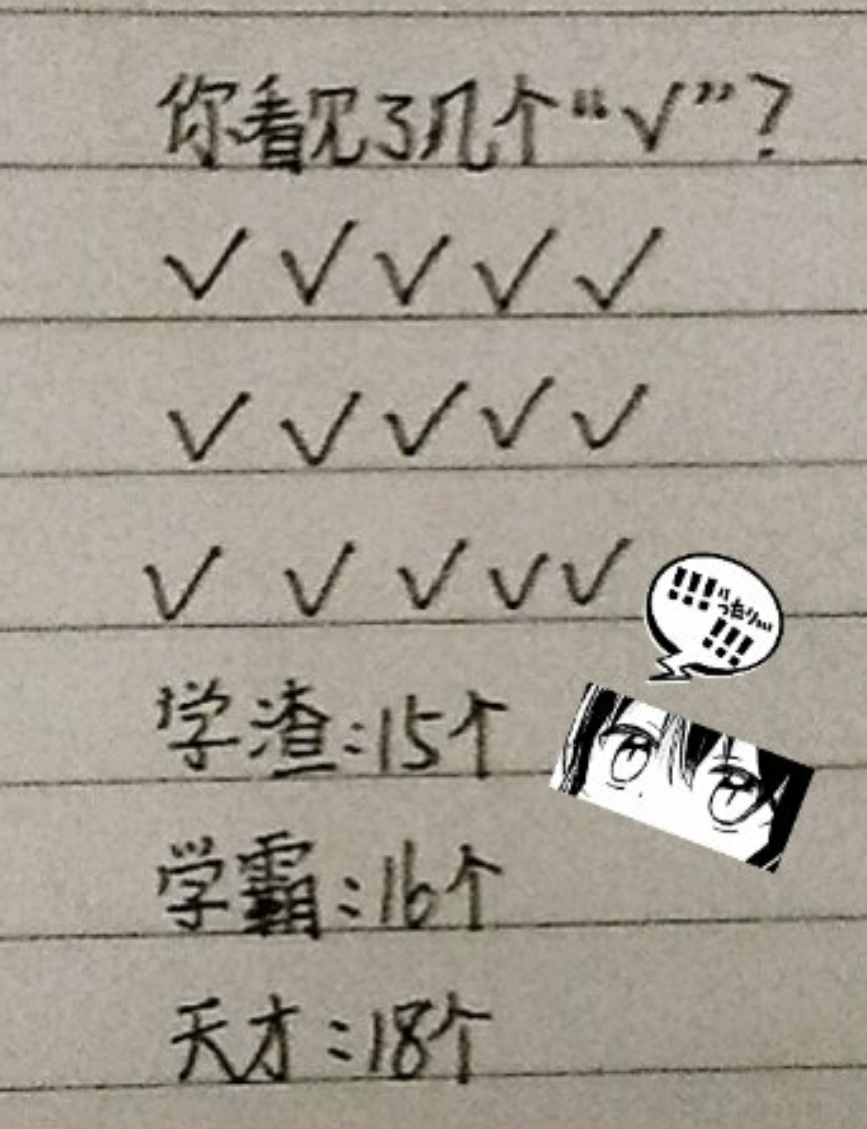 你看见了几个“√”?
√ √ √ √ √
√ √ √ √ √
√ √ √ √ √
!!!
!!!
学渣:15个
学霸:16个
天才:18个